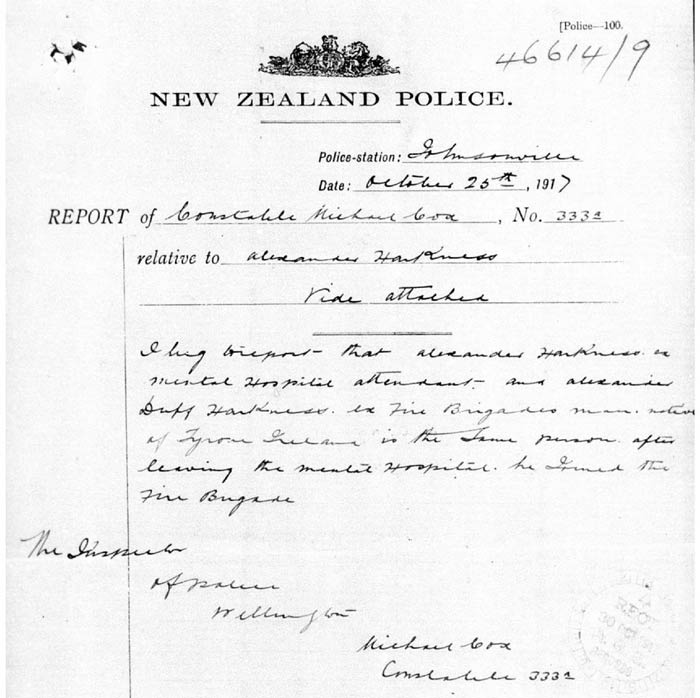 [Police—100.
46614/9
NEW ZEALAND POLICE.
Police-station: Johnsonville
Date: October 25th, 1917
REPORT of Constable Michael Cox, No. 333a
relative to Alexander Harkness
Vide attached
I beg to report that Alexander Harkness ex
mental Hospital attendant and Alexander
Duff Harkness ex Fire Brigades man native
of Tyrone Ireland is the same person after
leaving the mental Hospital he Joined the
Fire Brigade
The Inspector
of Police
Wellington
Michael Cox
Constable 333a